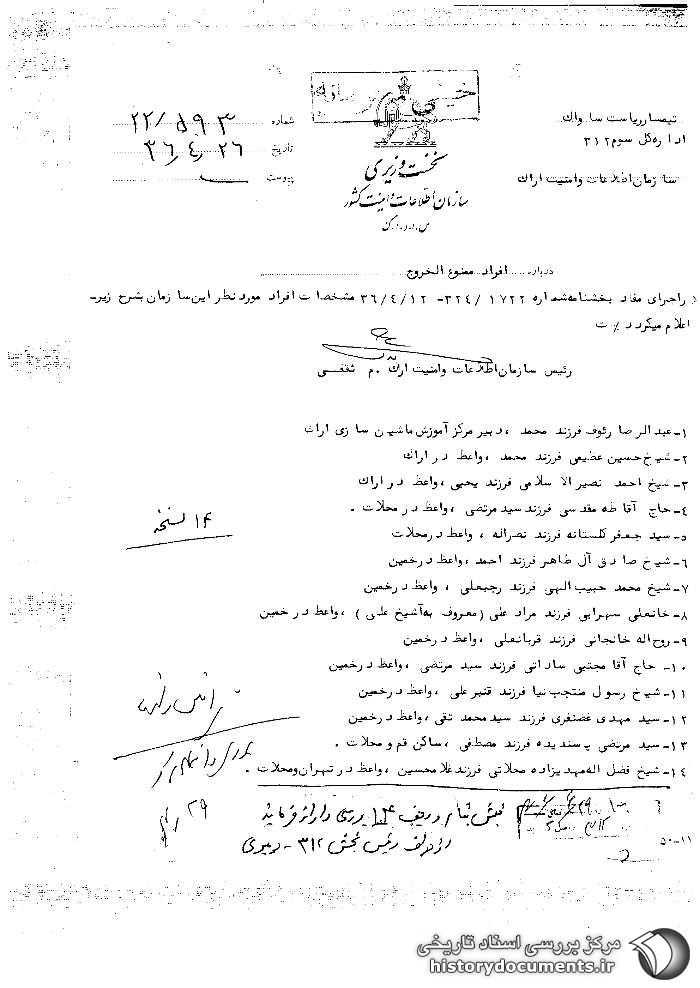 خیلی
تیمسار ریاست ساواك
شماره ۲۲/۵۹۳
اداره کل سوم ۳۱۲
تاریخ ۳۶/۴/۲۶
نخست وزیری
سازمان اطلاعات و امنیت اراك
پیوست
سازمان اطلاعات و امنیت کشور
س.ا.و.ا.ک
درباره افراد ممنوع الخروج
راجرای مفاد بخشنامه شماره ۱۷۲۲/ ۳۲۴- ۳۶/۴/۱۲ مشخصات افراد مورد نظر این سازمان بشرح زیر-
اعلام میگردد٪ ت
رئیس سازمان اطلاعات وامنیت اراك . م ثقفی
۱-عبدالرضا رئوف فرزند محمد ،دبیر مرکز آموزش ماشین سازی اراك
۲-شیخ حسین عظیمی فرزند محمد ،واعظ در اراك
۳-شیخ احمد نصیرالاسلامی فرزند یحیی ،واعظ در اراك
۴-حاج آقا طه مقدسی فرزند سید مرتضی ،واعظ در محلات .
۵-سید جعفر گلستانه فرزند نصراله ، واعظ درمحلات
۶-شیخ صادق آل طاهر فرزند احمد ،واعظ درخمین
۷-شیخ محمد حبیب الهی فرزند رجبعلی ، واعظ درخمین
۸-خانعلی سهرابی فرزند مراد علی (معروف به آشیخ علی ) ،واعظ در خمین
۹-روح اله خانجانی فرزند قربانعلی ،واعظ درخمین
۱۰- حاج آقا مجتبی ساداتی فرزند سید مرتضی ،واعظ درخمین
۱۱-شیخ رسول منتجب نیا فرزند قنبر علی ،واعظ درخمین
۱۲-سید مهدی غضنفری فرزند سید محمد تقی ،واعظ درخمین
۱۳-سید مرتضی پسندیده فرزند مصطفی ،ساکن قم و محلات .
۱۴-شیخ فضل اله مهدیزاده محلاتی فرزند غلامحسین ،واعظ در تهران ومحلات .
۱۴ نسخه
۲۹/۴
بخش ثبام ردیف ۱۴ بررسی دارائز فرمایند
رئیس بخش ۳۱۲- دبیری
۵۰-۱۱
مرکز بررسی اسناد تاریخی
historydocuments.ir